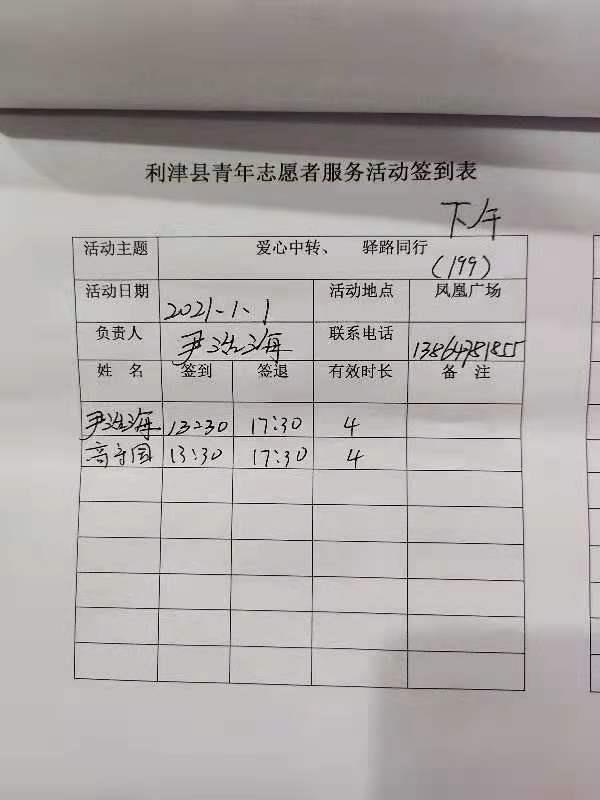 利津县青年志愿者服务活动签到表
下午
活动主题 爱心中转、 驿路同行
(199)
活动日期 2021-1-1 活动地点 凤凰广场
负责人 尹浩海 联系电话 13864781855
姓 名 签到 签退 有效时长 备 注
尹浩海 13:30 17:30 4
高守国 13:30 17:30 4